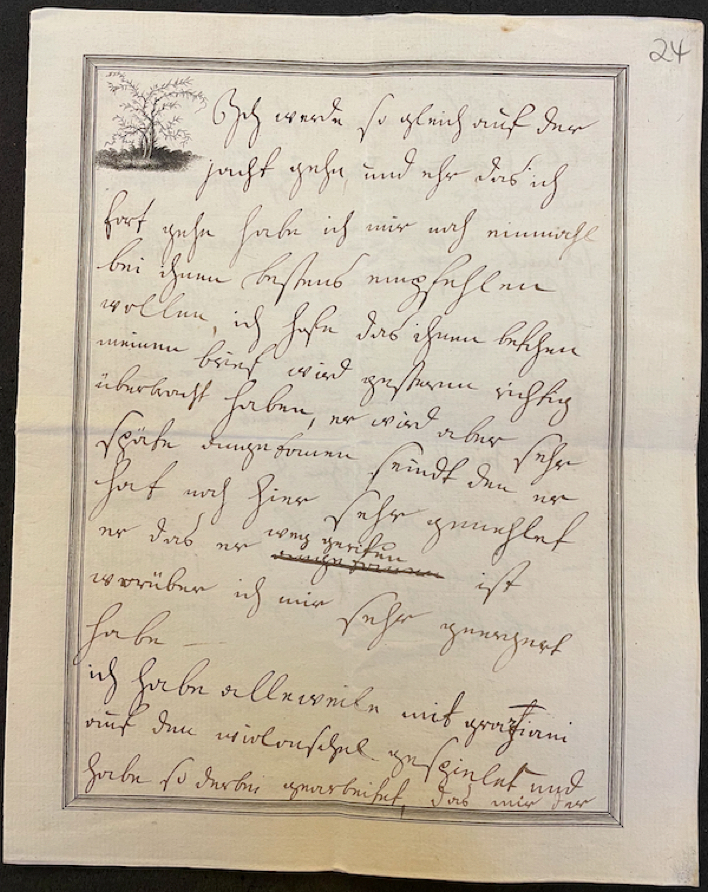 24
Ich werde so gleich auf der
jacht gehn, und ehr das ich
fort gehe habe ich mir noch einmahl
bei ihnen bestens empfehlen
wollen, ich hofe das ihnen betchen
meinen brief wird gestern richtig
überbracht haben, er wird aber sehr
späte angekomen seindt den er
hat noch hier sehr genehlet
er das er weg geritten ist
worüber ich mir sehr geergert
habe —
ich habe alleweile mit gratziani
auf den violonschel gespielet und
habe so derbei gearbeitet, das mir der